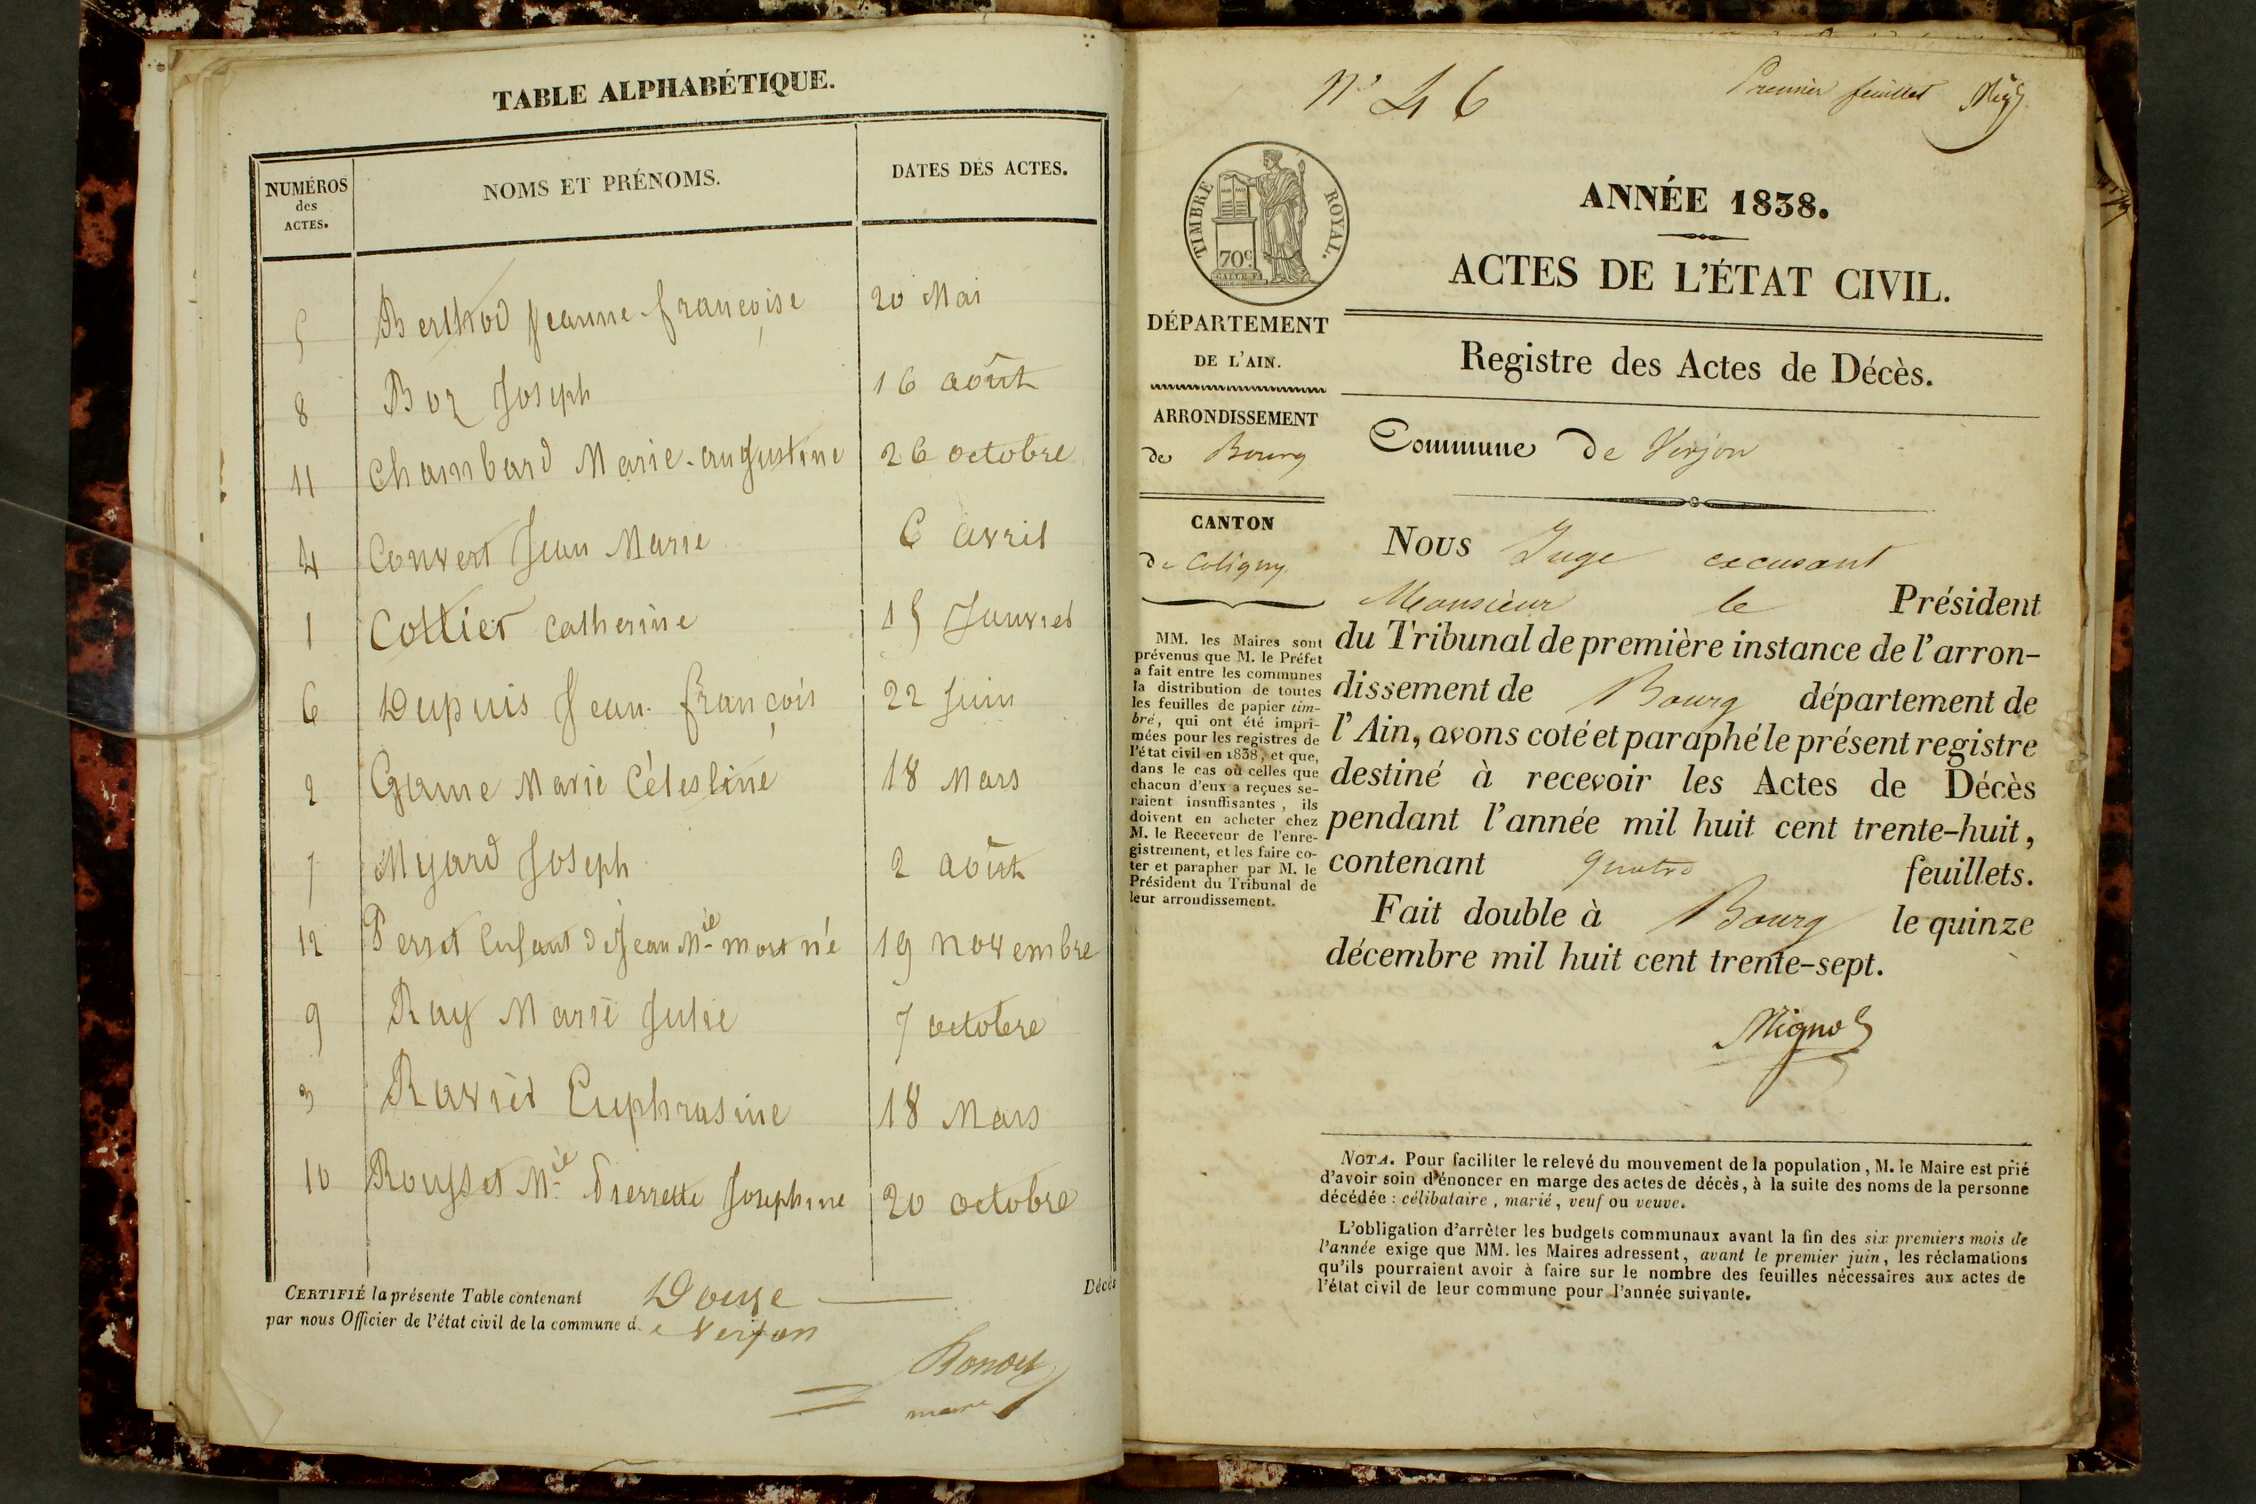 TABLE ALPHABÉTIQUE.
NUMÉROS des ACTES. NOMS ET PRÉNOMS. DATES DES ACTES.
5 Berthod Jeanne-françoise 20 Mai
8 Boz Joseph 16 août
11 Chambard Marie-augustine 26 octobre
4 Convert Jean Marie 6 avril
1 Cottier Catherine 15 Janvier
6 Dupuis Jean-françois 22 Juin
2 Game Marie Célestine 18 Mars
7 Myard Joseph 2 août
12 Perret Enfant de Jean Mie mort né 19 novembre
9 Ray Marie Julie 7 octobre
3 Ravier Euphrasine 18 Mars
10 Rousset Mie Pierrette Josephine 20 octobre
CERTIFIÉ la présente Table contenant Douze Décès
par nous Officier de l'état civil de la commune de Verjon
maire
N° 46
Premier feuillet
TIMBRE ROYAL.
70c
ANNÉE 1838.
ACTES DE L'ÉTAT CIVIL.
DÉPARTEMENT
DE L'AIN.
Registre des Actes de Décès.
ARRONDISSEMENT
de Bourg
Commune de Verjon
CANTON
de Coligny
MM. les Maires sont
prévenus que M. le Préfet
a fait entre les communes
la distribution de toutes
les feuilles de papier tim-
bré, qui ont été impri-
mées pour les registres de
l'état civil en 1838, et que,
dans le cas où celles que
chacun d'eux a reçues se-
raient insuffisantes, ils
doivent en acheter chez
M. le Receveur de l'enre-
gistrement, et les faire co-
ter et parapher par M. le
Président du Tribunal de
leur arrondissement.
Nous Juge excusant
Monsieur le Président
du Tribunal de première instance de l'arron-
dissement de Bourg département de
l'Ain, avons coté et paraphé le présent registre
destiné à recevoir les Actes de Décès
pendant l'année mil huit cent trente-huit,
contenant quatre feuillets.
Fait double à Bourg le quinze
décembre mil huit cent trente-sept.
NOTA. Pour faciliter le relevé du mouvement de la population, M. le Maire est prié
d'avoir soin d'énoncer en marge des actes de décès, à la suite des noms de la personne
décédée : célibataire, marié, veuf ou veuve.
L'obligation d'arrêter les budgets communaux avant la fin des six premiers mois de
l'année exige que MM. les Maires adressent, avant le premier juin, les réclamations
qu'ils pourraient avoir à faire sur le nombre des feuilles nécessaires aux actes de
l'état civil de leur commune pour l'année suivante.